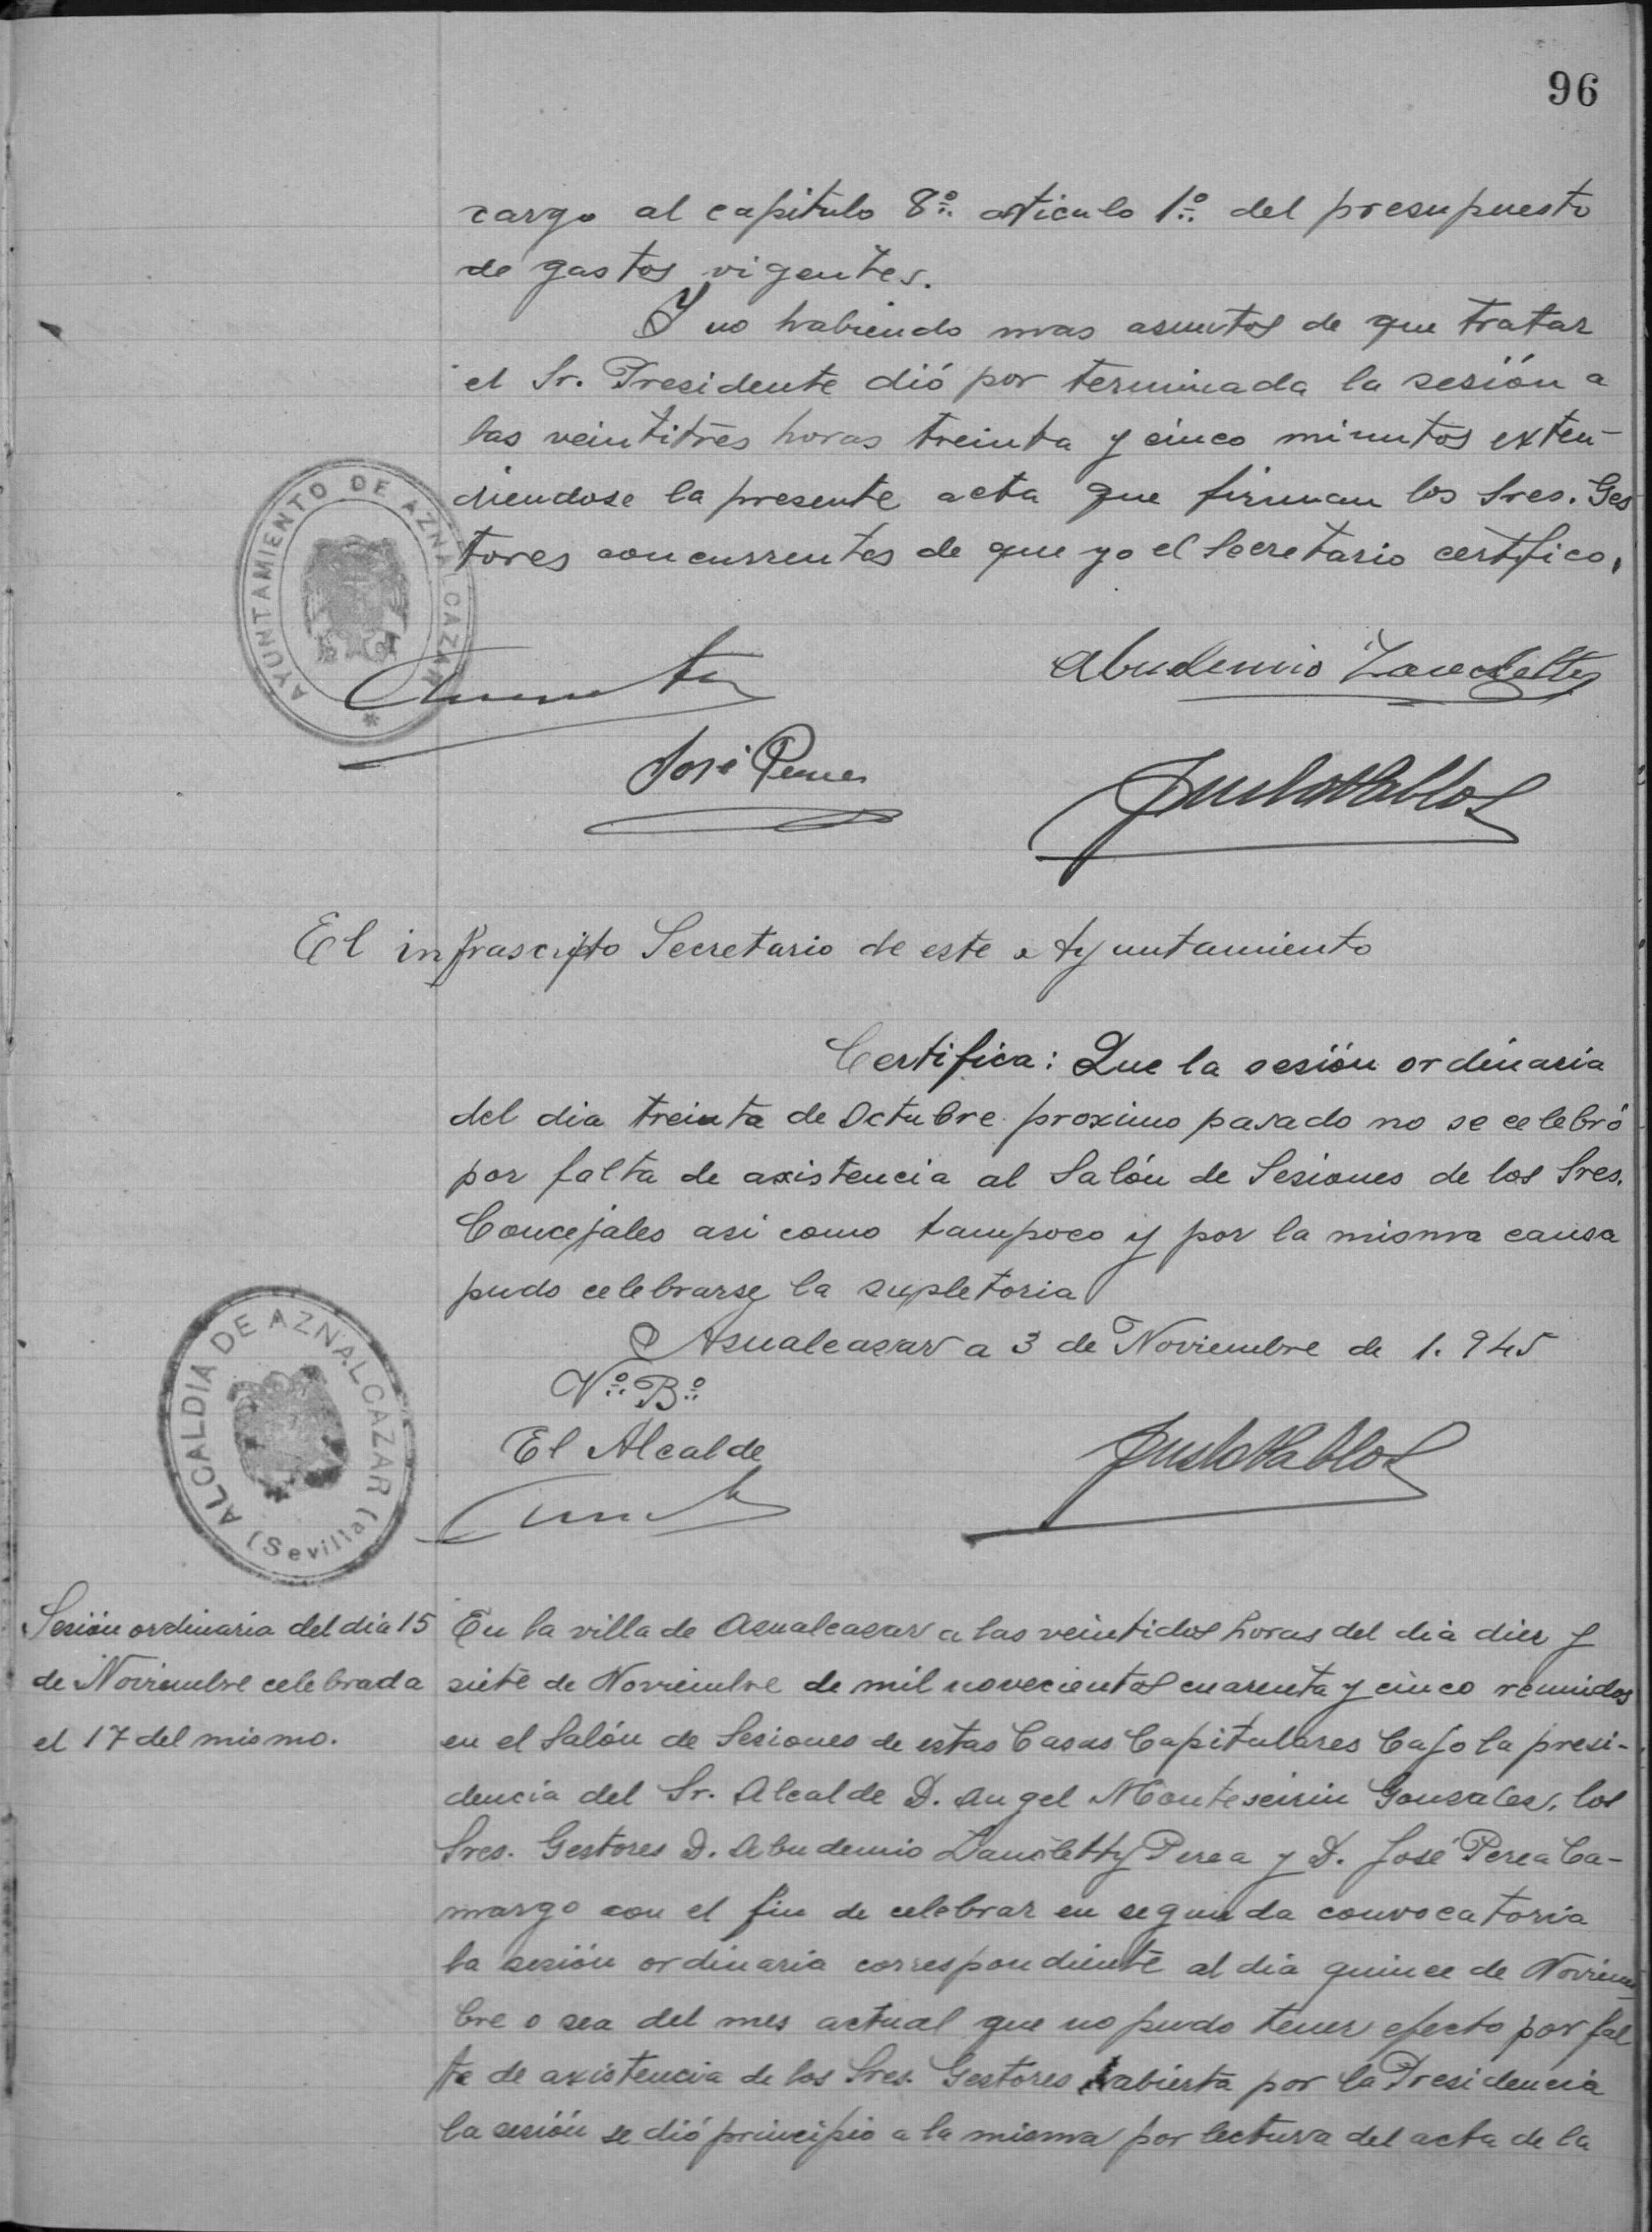 96
cargo al capitulo 8º articulo 1º del presupuesto
de gastos vigentes.
Y no habiendo mas asuntos de que tratar
el Sr. Presidente dió por terminada la sesión a
las veintitrés horas treinta y cinco minutos exten-
diendose la presente acta que firman los Sres. Ges
tores concurrentes de que yo el Secretario certifico.
AYUNTAMIENTO DE AZNALCAZAR
Abudemio Lancletty
José Perea
Justo Pablos
El infrascripto Secretario de este Ayuntamiento
Certifica: Que la sesión ordinaria
del dia treinta de Octubre proximo pasado no se celebró
por falta de axistencia al Salón de Sesiones de los Sres.
Concejales asi como tampoco y por la misma causa
pudo celebrarse la supletoria
Asnalcasar a 3 de Noviembre de 1.945
Vº Bº
El Alcalde
Justo Pablos
ALCALDIA DE AZNALCAZAR (Sevilla)
Sesión ordinaria del dia 15
de Noviembre celebrada
el 17 del mismo.
En la villa de Asnalcasar a las veintidos horas del dia diez y
siete de Noviembre de mil novecientos cuarenta y cinco reunidos
en el Salón de Sesiones de estas Casas Capitulares bajo la presi-
dencia del Sr. Alcalde D. Angel Monteseirin Gonsales, los
Sres. Gestores D. Abudemio Lancletty Perea y D. José Perea Ca-
margo con el fin de celebrar en segunda convocatoria
la sesión ordinaria correspondiente al dia quince de Noviem-
bre o sea del mes actual que no pudo tener efecto por fal
ta de axistencia de los Sres. Gestores abierta por la Presidencia
la sesión se dió principio a la misma por lectura del acta de la